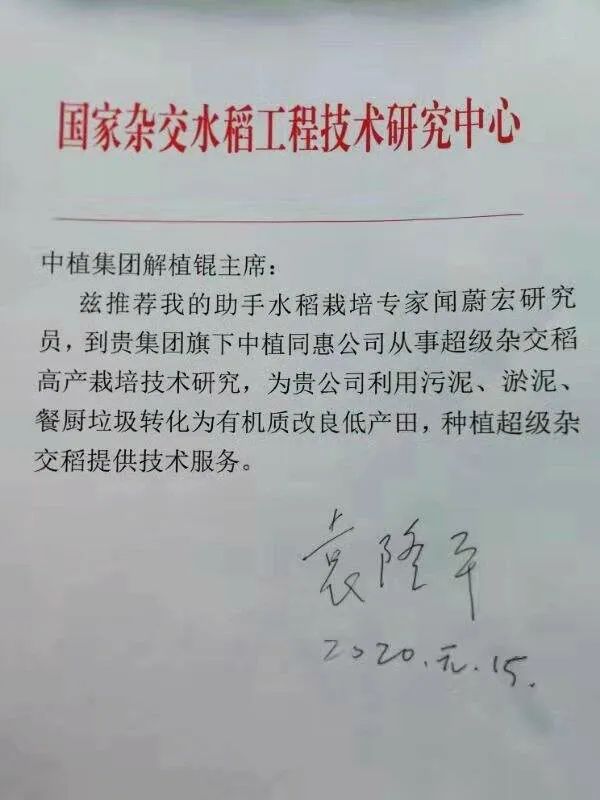 国家杂交水稻工程技术研究中心
中植集团解植锟主席：
兹推荐我的助手水稻栽培专家闻蔚宏研究
员，到贵集团旗下中植同惠公司从事超级杂交稻
高产栽培技术研究，为贵公司利用污泥、淤泥、
餐厨垃圾转化为有机质改良低产田，种植超级杂
交稻提供技术服务。
袁隆平
2020.元.15.